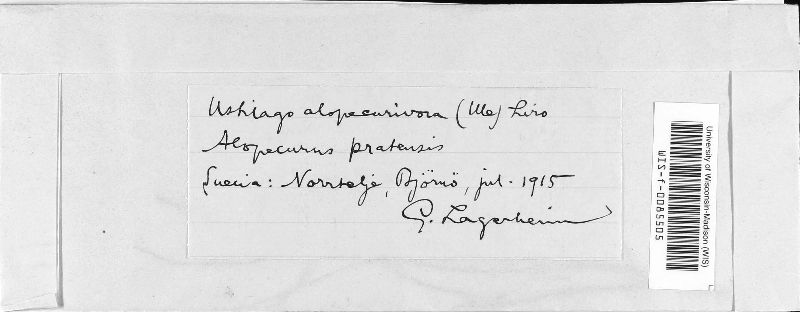 Ustilago alopecurivora (Ule) Liro
Alopecurus pratensis
Suecia: Norrtelje, Björnö, jul. 1915
G. Lagerheim
University of Wisconsin-Madison (WIS)
WIS-f-0085505